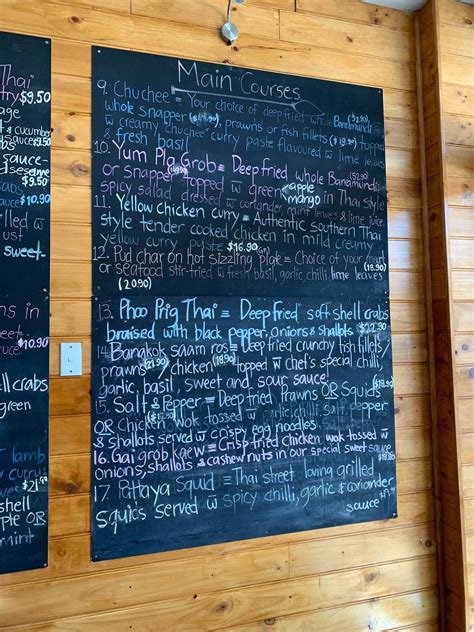 Thai
$9.50
& cucumber
sauce
sauce-
$9.50
$10.90
sweet-
sauce
$10.90
shell crabs
green
lamb
curry
OR
mint
Main Courses
9. Chuchee = Your choice of deepfried whole Barramundi
whole snapper prawns or fish fillets topped
w creamy "chuchee" curry paste flavoured w lime leaves
& fresh basil
10. Yum Pla Grob = Deepfried whole Barramundi
or Snapper topped w green apple mango in Thai style
spicy salad dressed w coriander, mint leaves & lime juice
11. Yellow chicken curry = Authentic southern Thai
style tender cooked chicken in mild creamy
yellow curry paste $16.90
12. Pud char on hot sizzling plate = Choice of your meat
or seafood stir-fried w fresh basil, garlic, chilli, lime leaves
(18.90)
(20.90)
13. Phoo Prig Thai = Deep fried soft shell crabs
braised with black pepper, onions & shallots $22.90
14. Bangkok saam ros = Deep fried crunchy fish fillets/
prawns /chicken topped w chef's special chilli,
garlic, basil, sweet and sour sauce
15. Salt & Pepper = Deep fried Prawns OR Squids
OR Chicken wok tossed w garlic, chilli, salt, pepper
& shallots served w crispy egg noodles
16. Gai grob kaew = Crisp fried chicken wok tossed w
onions, shallots & cashew nuts in our special sweet sauce
17. Pattaya Squid = Thai street loving grilled
squids served w spicy chilli, garlic & coriander
sauce